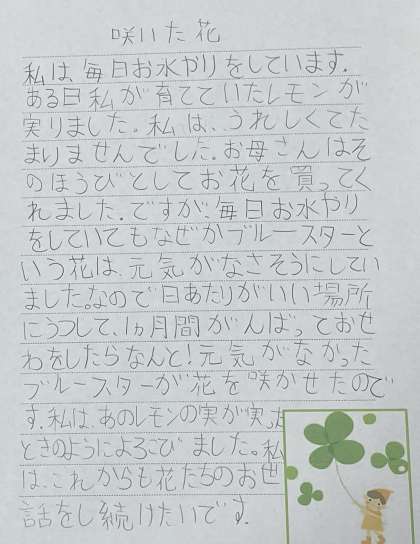 咲いた花
私は、毎日お水やりをしています。
ある日私が育てていたレモンが
実りました。私は、うれしくてた
まりませんでした。お母さんはそ
のほうびとしてお花を買ってく
れました。ですが、毎日お水やり
をしていてもなぜかブルースターと
いう花は、元気がなさそうにしてい
ました。なので日あたりがいい場所
にうつして、1ヵ月間がんばっておせ
わをしたらなんと!元気がなかった
ブルースターが花を咲かせたので
す。私は、あのレモンの実が実った
ときのようによろこびました。私
は、これからも花たちのお世
話をし続けたいです。